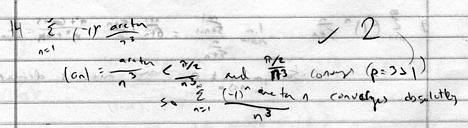 14 ∞ Σ n=1 (-1)^n arctan / n^3 ✓ 2
|an| = arctan / n^3 < π/2 / n^3 and π/2 / n^3 converges (p=3>1)
so ∞ Σ n=1 (-1)^n arctan n / n^3 converges absolutely